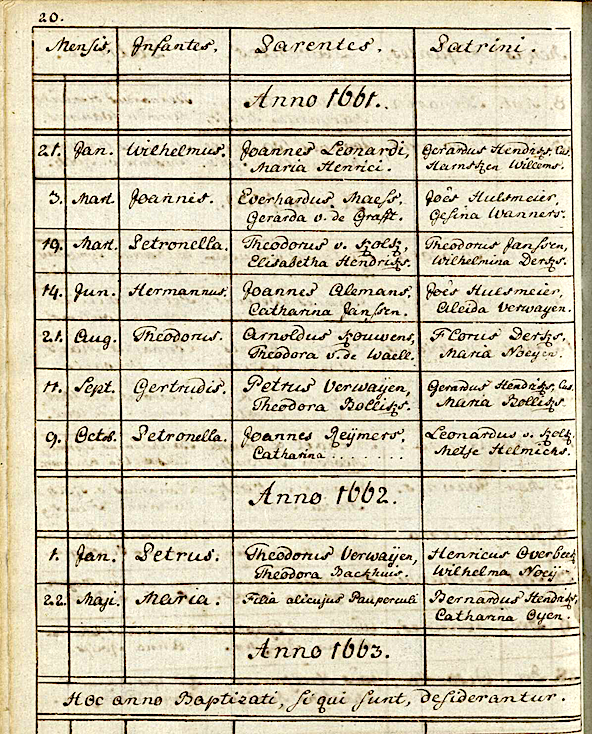 20.
Mensis. Infantes. Parentes. Patrini.
Anno 1661.
21. Jan. Wilhelmus. Joannes Leonardi, Gerardus Hendriks, Cus.
Maria Henrici. Willems.
3. Mart. Joannis. Everhardus Maess. Joes Hulsmeier,
Gerarda v. de Grafft. Gesina Wanners.
19. Mart. Petronella. Theodorus v. Kolk, Theodorus Janssen,
Elisabetha Hendriks. Wilhelmina Derks.
14. Jun. Hermannus. Joannes Alemans, Joes Hulsmeier,
Catharina Janssen. Aleida Verwayen.
21. Aug. Theodorus. Arnoldus Kouwens, Florus Derks.
Theodora v. de Waell. Maria Noeyen.
11. Sept. Gertrudis. Petrus Verwayen, Gerardus Hendriks, Cus.
Theodora Bolliks. Maria Bolliks.
9. Octb. Petronella. Joannes Reijmers, Leonardus v. Kolk,
Catharina . . . . . . . Metje Helmichs.
Anno 1662.
1. Jan. Petrus. Theodorus Verwayen, Henricus Overbeek
Theodora Backhuis. Wilhelma Noeij
22. Maji. Maria. Filia alicujus Pauperculi Bernardus Hendriks,
Catharina Oyen.
Anno 1663.
Hoc anno Baptizati, si qui sunt, desiderantur.